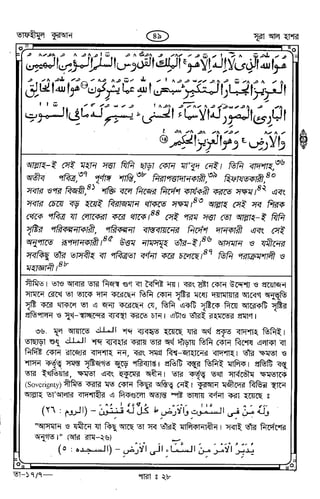 তাফহীমুল কুরআন ৪৯ সূরা আল হাশর
هُوَ اللّٰهُ الَّذِىْ لَاۤ اِلٰهَ اِلَّا هُوَ ۚ اَلْمَلِكُ الْقُدُّوْسُ السَّلٰمُ الْمُؤْمِنُ الْمُهَيْمِنُ
الْعَزِيْزُ الْجَبَّارُ الْمُتَكَبِّرُ ؕ سُبْحٰنَ اللّٰهِ عَمَّا يُشْرِكُوْنَ هُوَ اللّٰهُ الْخَالِقُ
الْبَارِئُ الْمُصَوِّرُ لَهُ الْاَسْمَآءُ الْحُسْنٰى ؕ يُسَبِّحُ لَهٗ مَا فِى السَّمٰوٰتِ
وَالْاَرْضِ ۚ وَهُوَ الْعَزِيْزُ الْحَكِيْمُ
আল্লাহ-ই সেই মহান সত্তা যিনি ছাড়া কোন মা'বুদ নেই। তিনি বাদশাহ,৩৬
অতীব পবিত্র,৩৭ পূর্ণাঙ্গ শান্তি,৩৮ নিরাপত্তাদানকারী,৩৯ হিফাযতকারী,৪০
সবার ওপর বিজয়ী,৪১ শক্তি বলে নিজের নির্দেশ কার্যকরী করতে সক্ষম৪২ এবং
সবার চেয়ে বড় হয়েই বিরাজমান থাকতে সক্ষম।৪৩ আল্লাহ সেই সব শিরক
থেকে পবিত্র যা লোকেরা করে থাকে।৪৪ সেই পরম সত্তা তো আল্লাহ-ই যিনি
সৃষ্টির পরিকল্পনাকারী, পরিকল্পনা বাস্তবায়নের নির্দেশ দানকারী এবং সেই
অনুপাতে রূপদানকারী।৪৫ উত্তম নামসমূহ তাঁর-ই।৪৬ আসমান ও যমীনের
সবকিছু তাঁর তাসবীহ বা পবিত্রতা বর্ণনা করে চলেছে।৪৭ তিনি পরাক্রমশালী ও
মহাজ্ঞানী।৪৮
সীমিত। তাও আবার তার নিজস্ব গুণ বা বৈশিষ্ট নয়। বরং স্রষ্টা কোন উদ্দেশ্য ও প্রয়োজন
সামনে রেখে তা তাকে দান করেছেন তিনি কোন সৃষ্টির মধ্যে দয়ামায়ার আবেগ অনুভূতি
সৃষ্টি করে থাকলে তা এ জন্য করেছেন যে, তিনি একটি সৃষ্টিকে দিয়ে আরেকটি সৃষ্টির
প্রতিপালন ও সুখ-স্বাচ্ছন্দের ব্যবস্থা করতে চান। এটাও তাঁরই রহমতের প্রমাণ।
৩৬. মূল আয়াতে الملك শব্দ ব্যবহৃত হয়েছে যার অর্থ প্রকৃত বাদশাহ তিনিই।
তাছাড়া শুধু الملك শব্দ ব্যবহার করায় তার অর্থ দাঁড়ায় তিনি কোন বিশেষ এলাকা বা
নির্দিষ্ট কোন রাজ্যের বাদশাহ নন, বরং সমগ্র বিশ্ব-জাহানের বাদশাহ। তাঁর ক্ষমতা ও
শাসন কর্তৃত্ব সমস্ত সৃষ্টিজগত জুড়ে পরিব্যাপ্ত। প্রতিটি বস্তুর তিনিই মালিক। প্রতিটি বস্তু
তার ইখতিয়ার, ক্ষমতা এবং হুকুমের অধীন। তার কর্তৃত্ব তথা সার্বভৌম ক্ষমতাকে
(Soverignty) সীমিত করার মত কোন কিছুর অস্তিত্ব নেই। কুরআন মজীদের বিভিন্ন স্থানে
আল্লাহ তা'আলার বাদশাহীর এ দিকগুলো অত্যন্ত স্পষ্ট ভাষায় বর্ণনা করা হয়েছে :
وَلَهٗ مَنْ فِى السَّمٰوٰتِ وَالْاَرْضِ ط كُلٌّ لَّهٗ قٰنِتُوْنَ - (الروم : ٢٦)
"আসমান ও যমীনে যা কিছু আছে তা সব তাঁরই মালিকানাধীন। সবাই তাঁর নির্দেশের
অনুগত।" (আর রূম-২৬)
يُدَبِّرُ الْاَمْرَ مِنَ السَّمَآءِ اِلَى الْاَرْضِ - (السجده : ٥)
তা-১৭/৭— পারা : ২৮